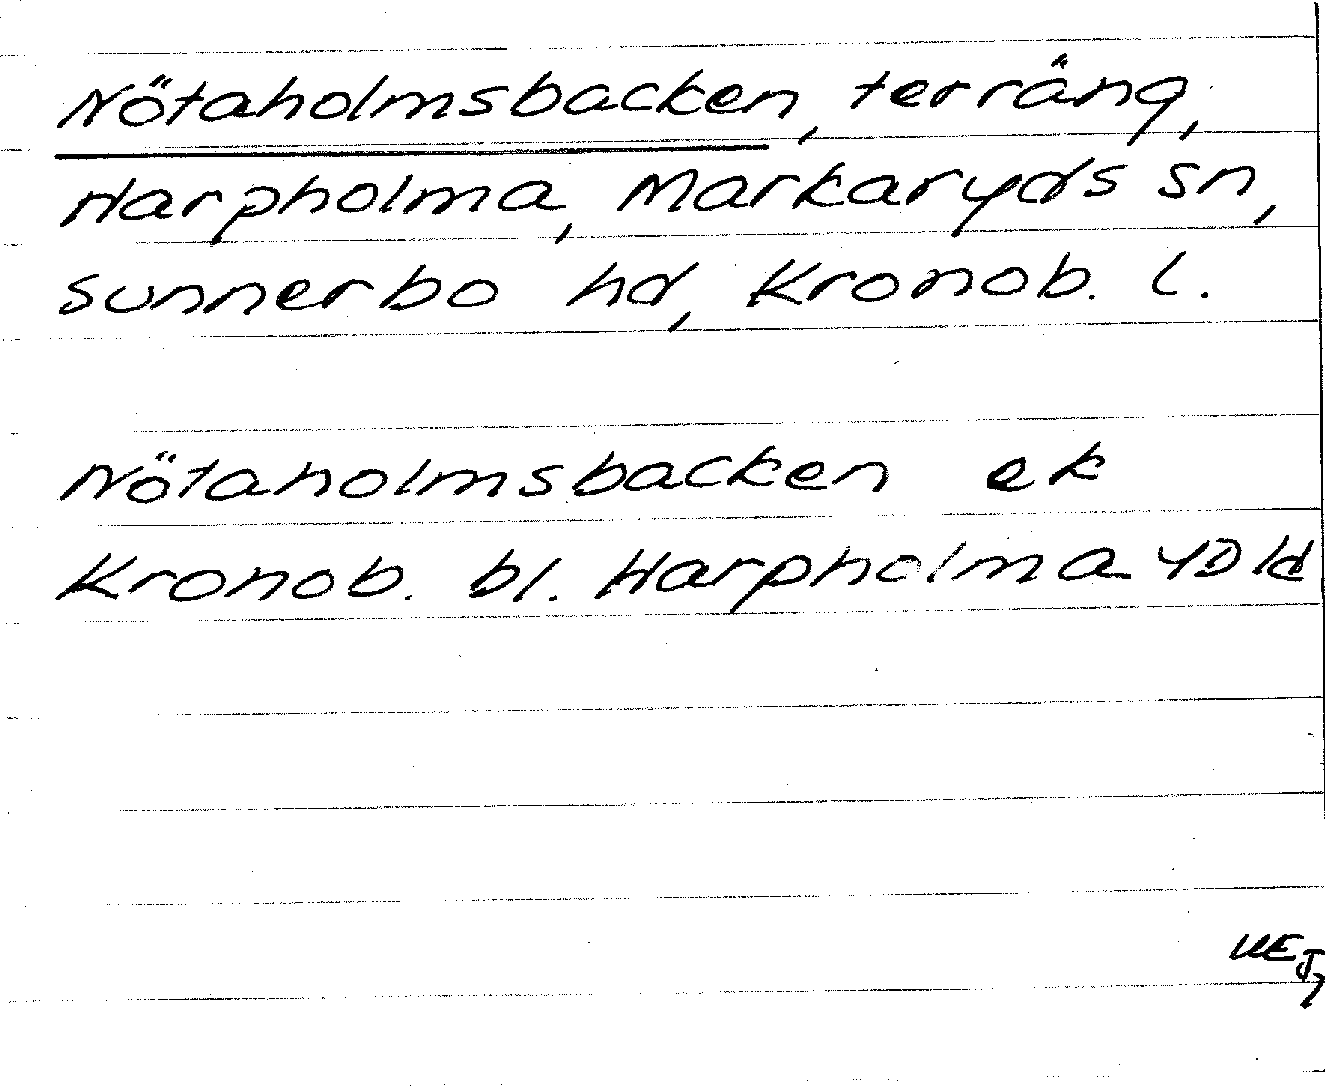 Nötaholmsbacken, terräng,
Harpholma, Markaryds sn,
Sunnerbo hd, Kronob. l.
Nötaholmsbacken ek
Kronob. bl. Harpholma 4D1d